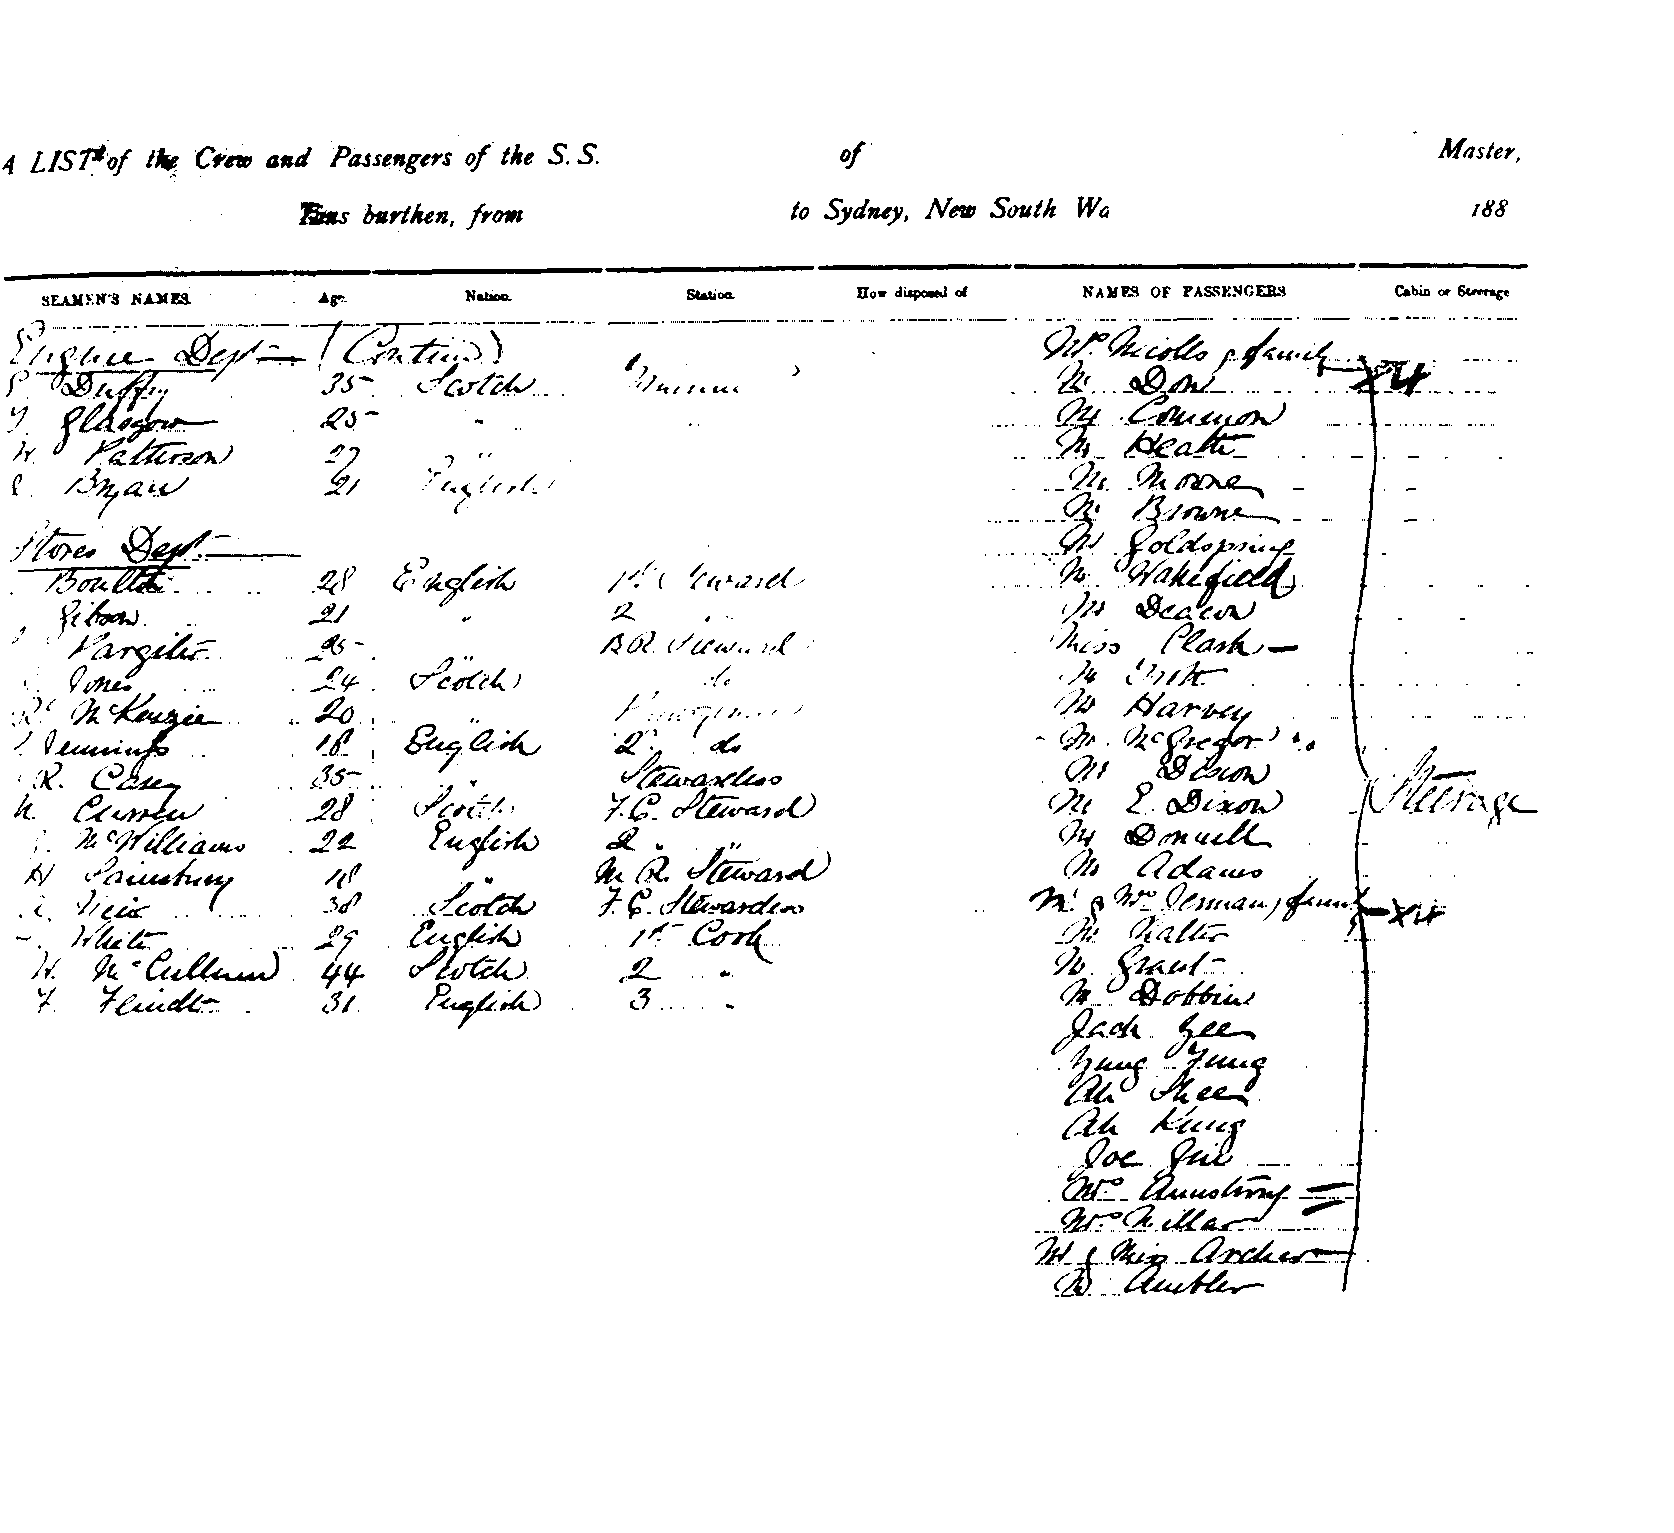 A LIST of the Crew and Passengers of the S. S. of Master,
Tons burthen, from to Sydney, New South Wa 188
SEAMEN'S NAMES. Age. Nation. Station. How disposed of NAMES OF PASSENGERS Cabin or Steerage
Engine Dept (Contin) Mrs Nicolls & family
Duffy 35 Scotch Mr Don
Glasgow 25 " Mr Common
W. Patterson 27 " Mr Heath
Bryan 21 English Mr
Mr Browne
Stores Dept Mr Goldspring
Boulton 28 English 1st Steward Mr Wakefield
Gibson 21 " 2 " Mr Deacon
Pargiter 25 " B.R. Steward Miss Clark
Jones 24 Scotch do Mr
McKenzie 20 " Mr Harvey
Jennings 18 English 2 do Mr McGregor
R. Casey 35 " Stewardess Mr Dixon
Curren 28 Scotch F.C. Steward Mr E. Dixon Steerage
McWilliams 22 English 2 " " Mr Donnell
H Sainsbury 18 " M.R. Steward Mr Adams
Weir 38 Scotch F.C. Stewardess Mr & Mrs Jerman & family
White 29 English 1st Cook Mr
W. McCullum 44 Scotch 2 " Mr Grant
F. Flindt 31 English 3 " Mr Dobbin
Jack Gee
Yung Fung
Ah Shee
Ah Kung
Joe
Mrs Armstrong
Mrs Millar
Mr & Miss Archer
Mr Ambler